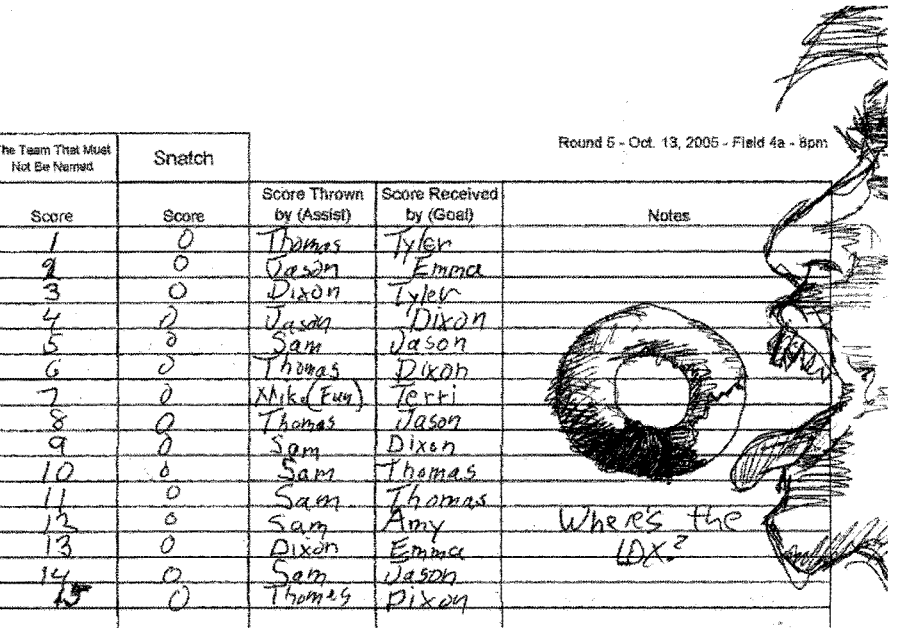 Round 5 - Oct. 13, 2005 - Field 4a - 8pm
The Team That Must Not Be Named Snatch
Score Score Score Thrown by (Assist) Score Received by (Goal) Notes
1 0 Thomas Tyler
2 0 Jason Emma
3 0 Dixon Tyler
4 0 Jason Dixon
5 0 Sam Jason
6 0 Thomas Dixon
7 0 Mike (Fun) Terri
8 0 Thomas Jason
9 0 Sam Dixon
10 0 Sam Thomas
11 0 Sam Thomas
12 0 Sam Amy
13 0 Dixon Emma
14 0 Sam Jason
15 0 Thomas Dixon
Where's the